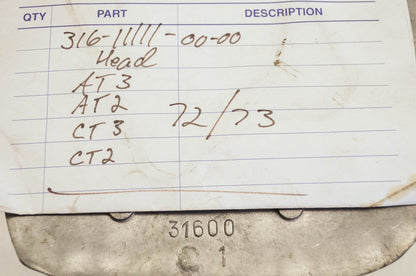 QTY PART DESCRIPTION
316-11111-00-00
Head
AT3
AT2
CT3 72/73
CT2
31600
C 1